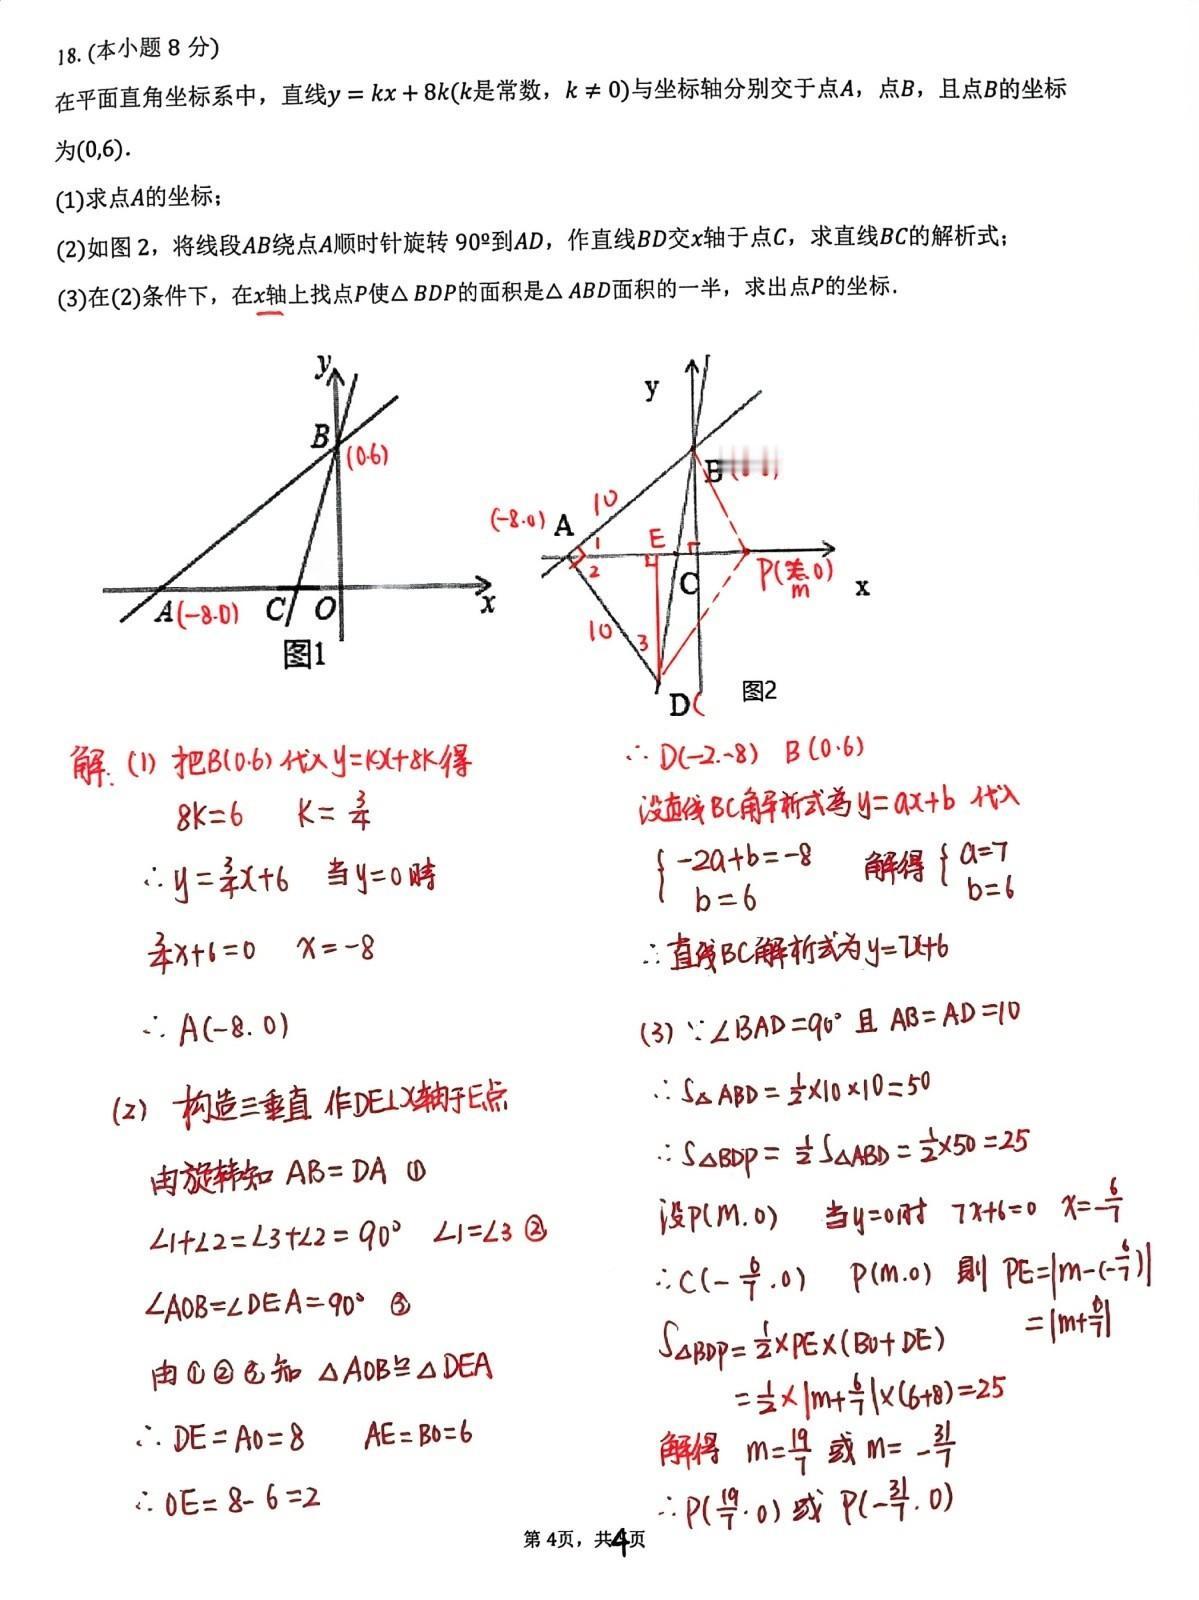 18. (本小题 8 分)
在平面直角坐标系中，直线y = kx + 8k(k是常数，k ≠ 0)与坐标轴分别交于点A，点B，且点B的坐标
为(0,6).
(1)求点A的坐标；
(2)如图 2，将线段AB绕点A顺时针旋转 90º到AD，作直线BD交x轴于点C，求直线BC的解析式；
(3)在(2)条件下，在x轴上找点P使△ BDP的面积是△ ABD面积的一半，求出点P的坐标.
y
B
(0.6)
A(-8.0)
C
O
x
图1
y
B
10
(-8.0)
A
1
2
E
C
P(m.0)
x
10
3
D(
图2
解: (1) 把B(0.6)代入y=kx+8k得
8k=6 k=3/4
∴y=3/4x+6 当y=0時
3/4x+6=0 x=-8
∴A(-8.0)
(2) 构造三垂直 作DE⊥X轴于E点
由旋转知 AB=DA ①
∠1+∠2=∠3+∠2=90° ∠1=∠3 ②
∠AOB=∠DEA=90° ③
由①②③知 △AOB≌△DEA
∴DE=AO=8 AE=BO=6
∴OE=8-6=2
∴D(-2.-8) B(0.6)
设直线BC解析式為y=ax+b 代入
{-2a+b=-8 解得{a=7
b=6 b=6
∴直线BC解析式为y=7x+6
(3) ∵∠BAD=90° 且 AB=AD=10
∴S△ABD=1/2×10×10=50
∴S△BDP=1/2S△ABD=1/2×50=25
设P(m.0) 当y=0时 7x+6=0 x=-6/7
∴C(-6/7.0) P(m.0) 則 PE=|m-(-6/7)|
=|m+6/7|
S△BDP=1/2×PE×(BO+DE)
=1/2×|m+6/7|×(6+8)=25
解得 m=19/7 或 m=-31/7
∴P(19/7.0)或 P(-31/7.0)
第 4页，共4页